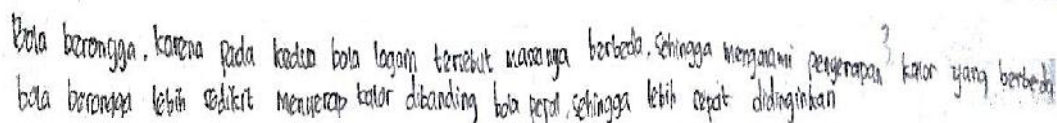 Bola berongga, karena pada kedua bola logam tersebut masanya berbeda, sehingga mengalami penyerapan kalor yang berbeda
bola berongga lebih sedikit menyerap kalor dibanding bola pejal, sehingga lebih cepat didinginkan